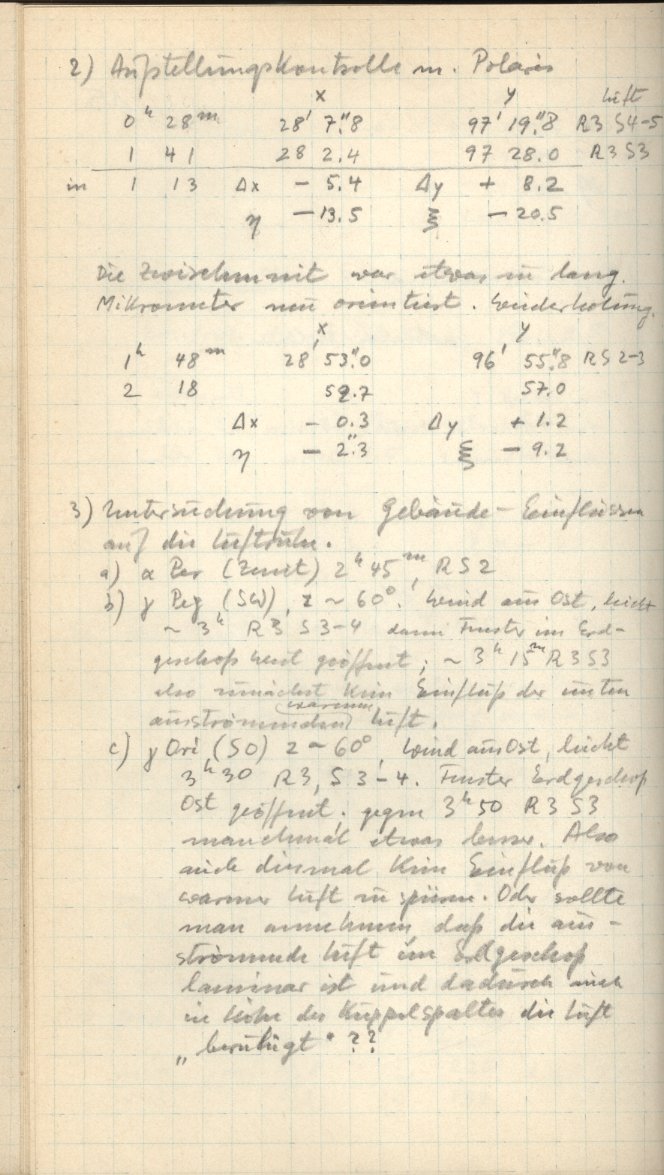 2) Aufstellungskontrolle m. Polaris
x y Luft
0ʰ 28ᵐ 28' 7."8 97' 19."8 R3 S4-5
1 41 28 2.4 97 28.0 R3 S3
in 1 13 Δx - 5.4 Δy + 8.2
η -13.5 ξ - 20.5
Die Zwischenzeit war etwas zu lang.
Mikrometer neu orientiert. Wiederholung.
x y
1ʰ 48ᵐ 28' 53."0 96' 55."8 R S2-3
2 18 52.7 57.0
Δx - 0.3 Δy + 1.2
η - 2."3 ξ - 9.2
3) Untersuchung von Gebäude-Einflüssen
auf die Luftruhe.
a) α Per (Zenit) 2ʰ 45ᵐ, R S2
b) γ Peg (SW), z ~ 60°. Wind aus Ost, leicht
~ 3ʰ R3 S3-4 dann Fenster im Erd-
geschoß West geöffnet; ~ 3ʰ 15ᵐ R3 S3
also zunächst kein Einfluß der unten
ausströmenden (warmen) Luft.
c) γ Ori (SO) z ~ 60°, Wind aus Ost, leicht
3ʰ30 R3, S3-4. Fenster Erdgeschoß
Ost geöffnet. gegen 3ʰ50 R3 S3
manchmal etwas besser. Also
auch diesmal kein Einfluß von
warmer Luft zu spüren. Oder sollte
man annehmen, daß die aus-
strömende Luft im Erdgeschoß
laminar ist und dadurch auch
in Höhe des Kuppelspaltes die Luft
„beruhigt" ??